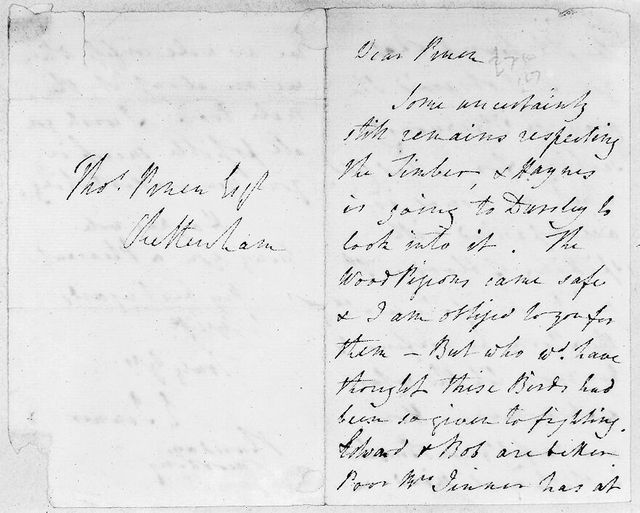 Thos. Pruen Esqr
Cheltenham
Dear Pruen
Some uncertainty
still remains respecting
the Timber, & Haynes
is going to Dursley to
look into it. The
Wood Pigeons came safe
& I am obliged to you for
them - But who wd. have
thought these Birds had
been so given to fighting.
Edward & Bob are better
Poor Mrs Jenner has at